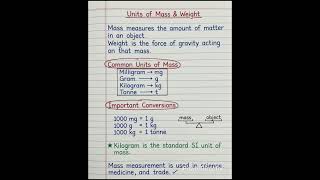 Units of Mass & Weight
Mass measures the amount of matter
in an object.
Weight is the force of gravity acting
on that mass.
Common Units of Mass
Milligram → mg
Gram → g
Kilogram → kg
Tonne → t
Important Conversions
1000 mg = 1 g
1000 g = 1 kg
1000 kg = 1 tonne
mass object
★ Kilogram is the standard SI unit of
mass.
Mass measurement is used in science,
medicine, and trade. ✓